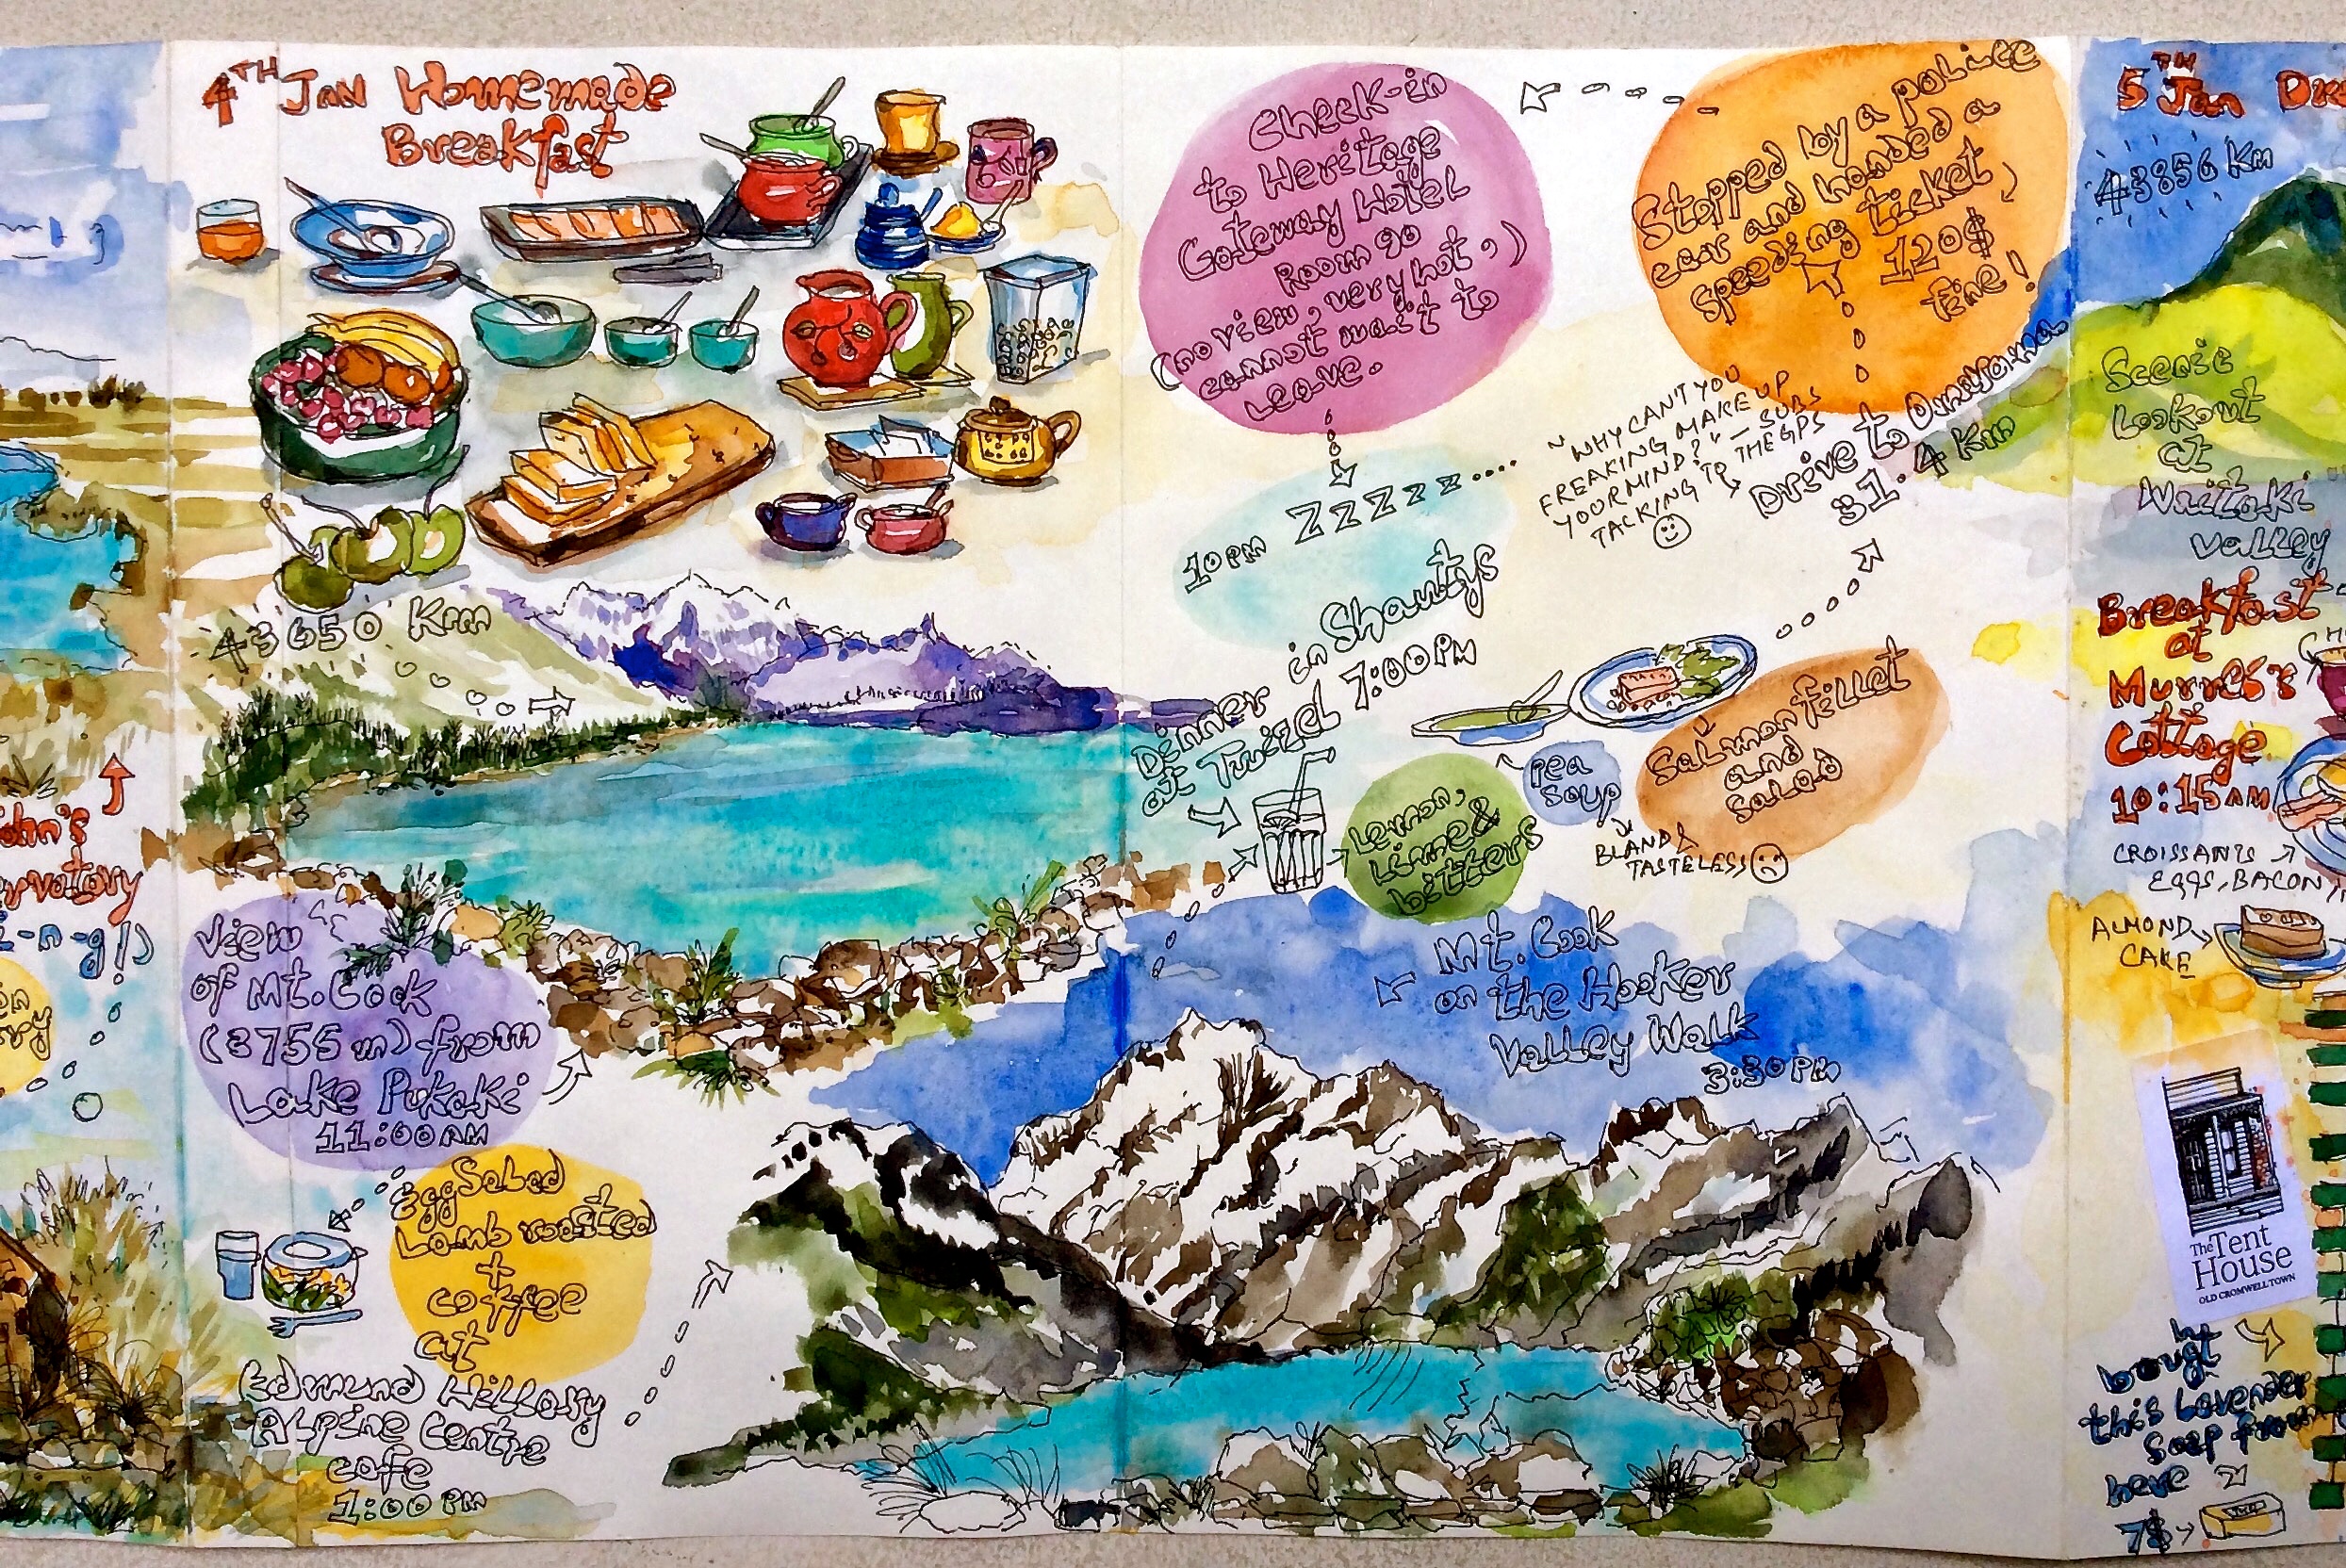 4TH Jan Homemade
Breakfast
43650 Km
View
of Mt. Cook
(3755 m) from
Lake Pukaki
11:00 AM
Egg Salad
Lamb roasted
+
coffee
at
Edmund Hillary
Alpine Centre
cafe
1:00 PM
Mt. Cook
on the Hooker
Valley Walk
3:30 PM
Dinner in Shawtys
at Twizel 7:00 PM
Lemon,
Lime &
bitters
Pea
Soup
BLAND &
TASTELESS
Salmon fillet
and
salad
Drive to
31.4 Km
"WHY CAN'T YOU
FREAKING MAKE UP
YOUR MIND?" — SUBS
TACKING TO THE GPS
Stopped by a police
car and handed a
speeding ticket,
120$
fine!
Check-in
to Heritage
Gateway Hotel
Room 90
(no view, very hot,)
cannot wait to
leave.
10PM ZZZZzz....
ohn's
rvatory
-n-g!)
5TH Jan
43856 Km
Scenic
Lookout
at
Waitaki
Valley
Breakfast
at
Cottage
10:15 AM
CROISSANTS
EGGS, BACON,
ALMOND
CAKE
The Tent
House
OLD CROMWELL TOWN
bougt
this Lavender
Soap from
here
7$